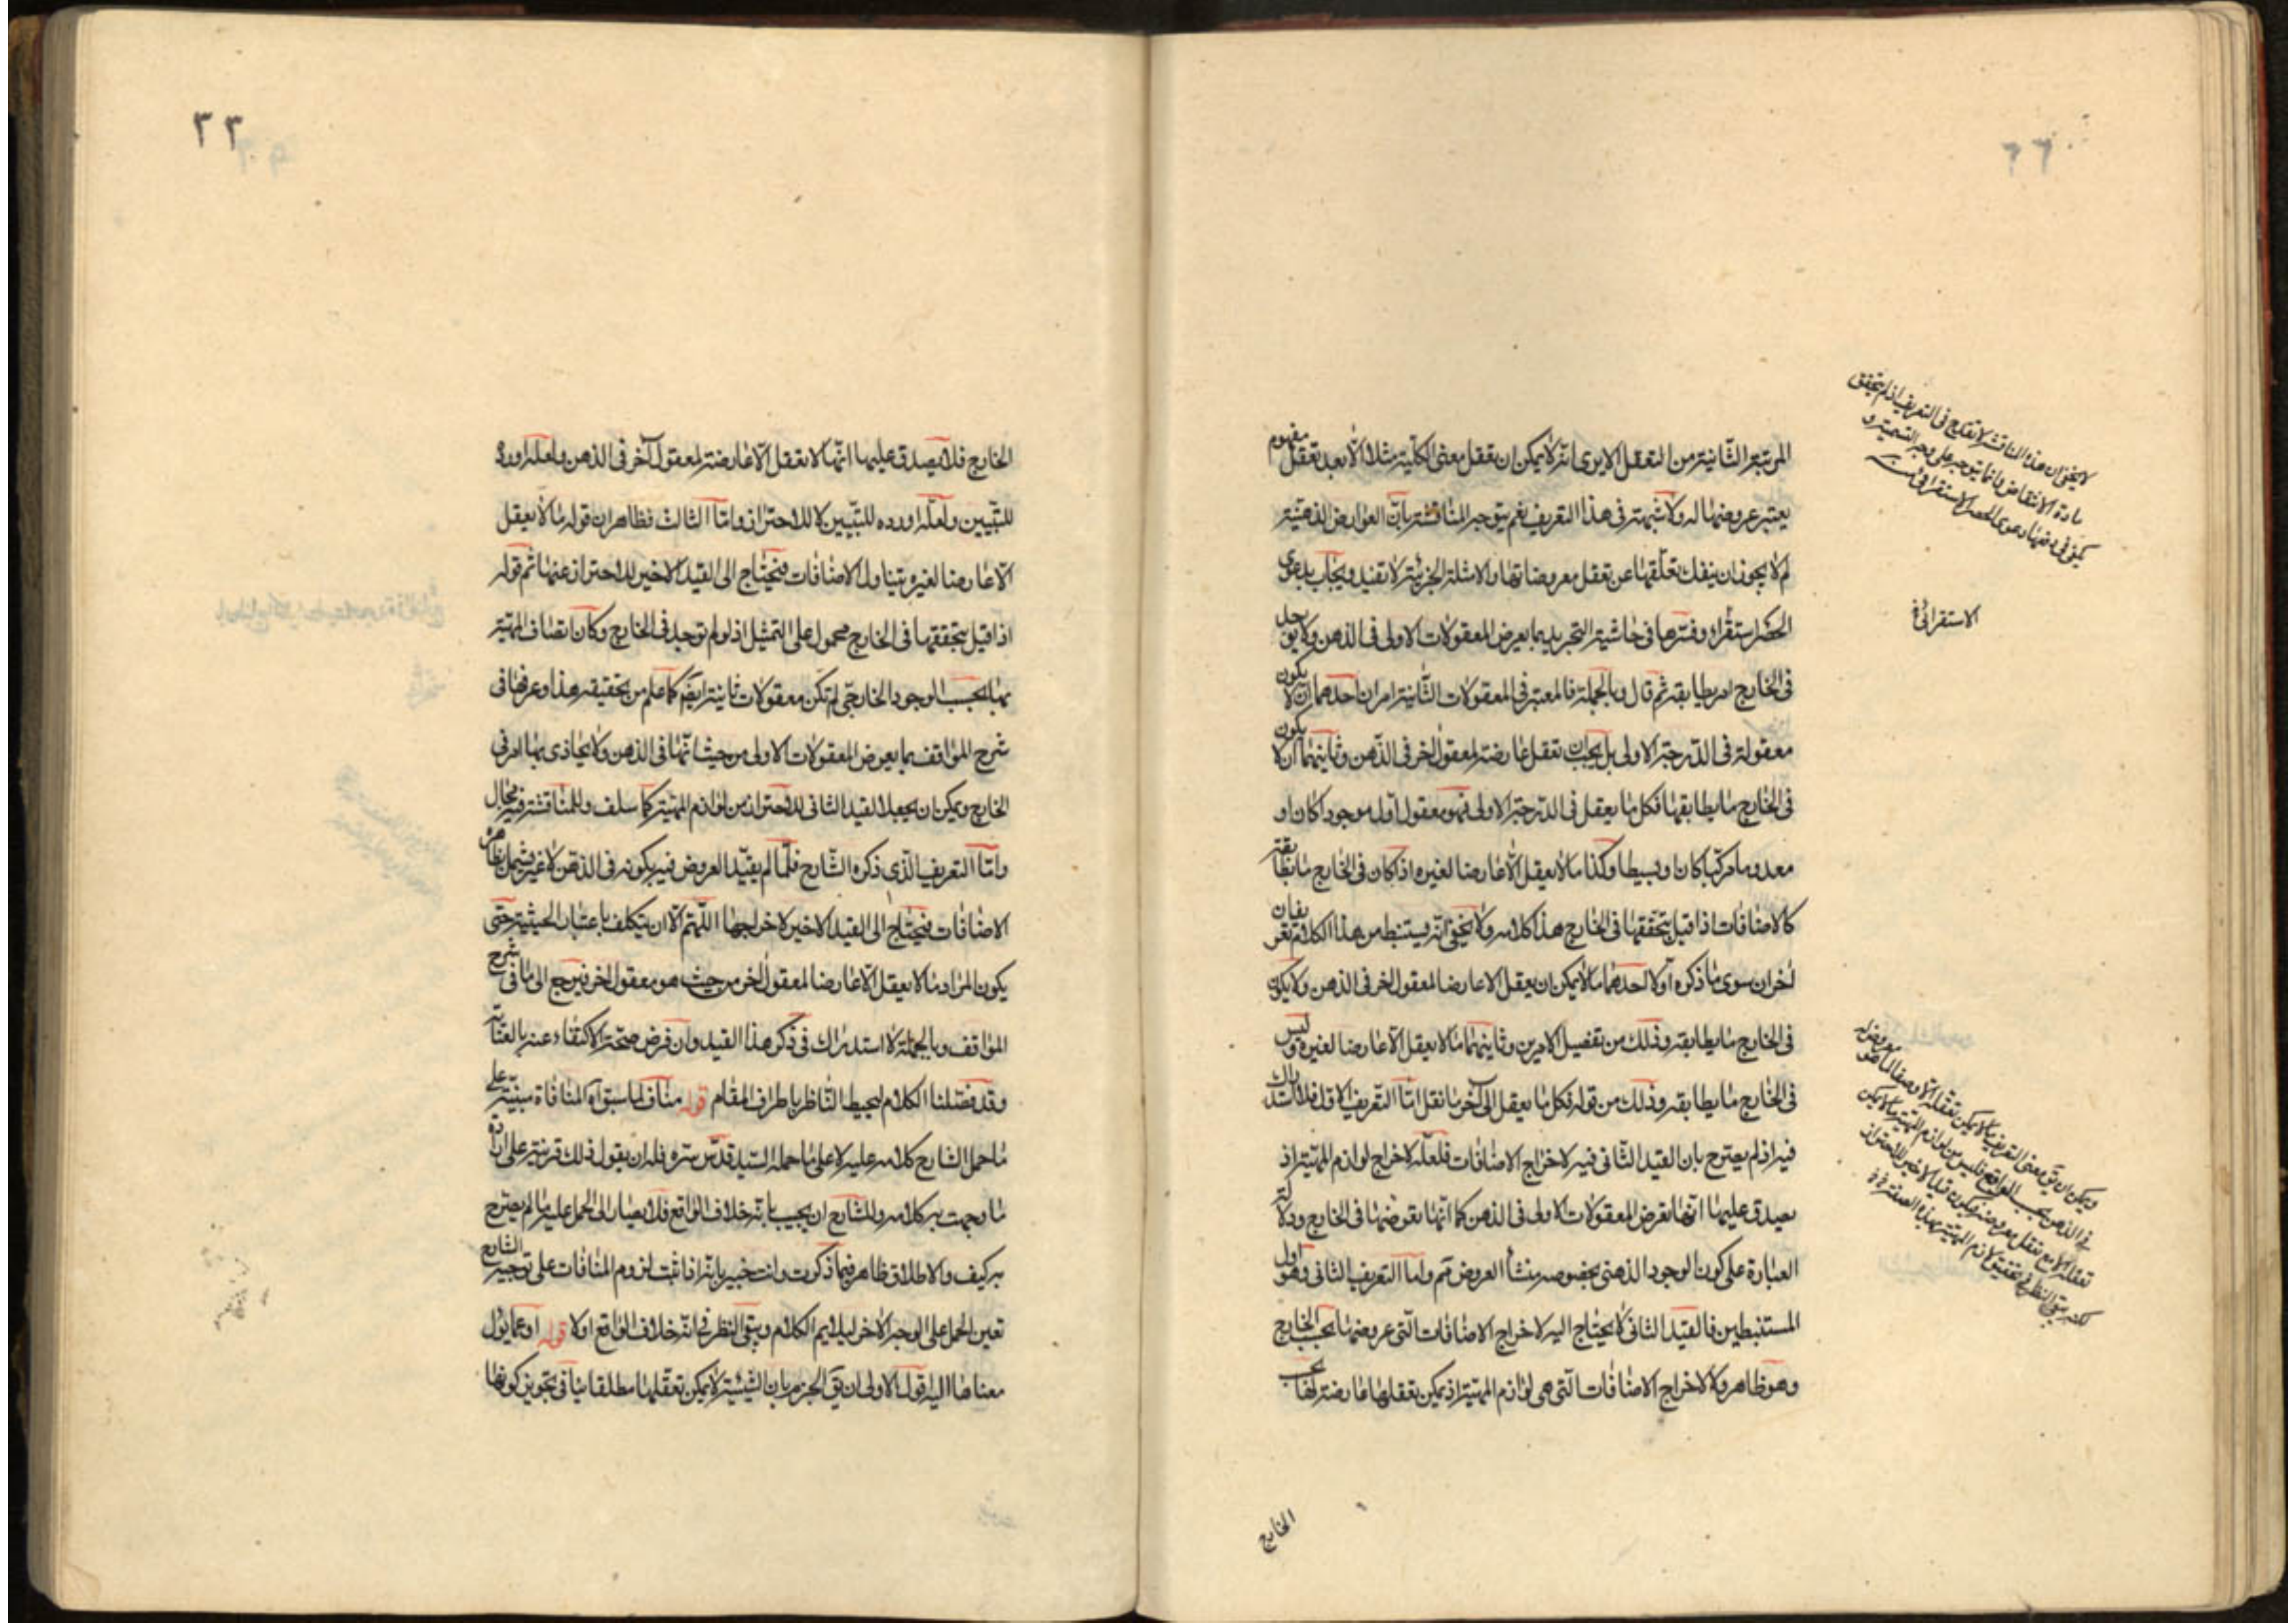 المرتبة الثانية من التعقل الا يرى انه لا يمكن ان تعقل معنى الكلية مثلا الا بعد تعقل مفهوم
يعتبر عروضها له ولا شبهة فى هذا التعريف نعم يتوجه المناقشة بان العوارض الذهنية
لم لا يجوز ان ينفك تعلقها عن تعقل معروضاتها والامثلة الجزئية لا تفيد ويجاب بدعوى
الحصر استقراء وفسرها فى حاشية التجريد بما يعرض للمعقولات الاولى فى الذهن ولا يوجد
فى الخارج امر يطابقه ثم قال وبالجملة فالمعتبر فى المعقولات الثانية امران احدهما ان لا يكون
معقولة فى الدرجة الاولى بل يجب ان تعقل عارضة لمعقول اخر فى الذهن وثانيهما ان لا يكون
فى الخارج ما يطابقها فكل ما يعقل فى الدرجة الاولى فهو معقول اول موجودا كان او
معدوما مركبا كان او بسيطا وكذا ما لا يعقل الا عارضا لغيره اذا كان فى الخارج ما يطابقه
كالاضافات اذا قيل بتحققها فى الخارج هذا كلامه ولا يخفى انه يستنبط من هذا الكلام تعريفان
اخران سوى ما ذكره اولا احدهما ما لا يمكن ان يعقل الا عارضا لمعقول اخر فى الذهن ولا يكون
فى الخارج ما يطابقه وذلك من تفصيل الامرين وثانيهما ما لا يعقل الا عارضا لغيره وليس
فى الخارج ما يطابقه وذلك من قوله فكل ما يعقل الى آخر ما نقل اما التعريف الاول فلا استدراك
فيه اذ لم يصرح بان القيد الثانى فيه لاخراج الاضافات فلعله لاخراج لوازم المهية اذ
يصدق عليها انها تعرض للمعقولات الاولى فى الذهن كما انها تعرضها فى الخارج ودلالة
العبارة على كون الوجود الذهنى بخصوصه منشأ العروض ثم واما التعريف الثانى وهو اول
المستنبطين فالقيد الثانى لا يحتاج اليه لاخراج الاضافات التى عروضها بحسب الخارج
وهو ظاهر ولا لاخراج الاضافات التى هى لوازم المهية اذ يمكن تعقلها عارضة لها بحسب
الخارج
لا يخفى ان هذه المناقشة لا تقدح فى التعريف اذ لم يتحقق
مادة الانتقاض وانما يتوجه على وجه التسمية و
يكفى فى دفعها دعوى الحصر الاستقرائى
الاستقرائى
ويمكن ان يق معنى التعريف ما لا يمكن تعقله الا وصفا لما هو معروض له
فى الذهن بحسب الواقع فليس من لوازم المهية ما لا يمكن
تعقله الا مع تعقل معروضه فيكون قيد الاخير للاحتراز
لكنه يبقى النظر فى تحقيق لازم المهية بهذه الصفة
٣٣
الخارج فلا يصدق عليها انها لا تعقل الا عارضة لمعقول آخر فى الذهن ولعله اورده
للتبيين ولعله اورده للتبيين لا للاحتراز واما الثالث فظاهر ان قوله ما لا يعقل
الا عارضا لغيره يتناول الاضافات فيحتاج الى القيد الاخير للاحتراز عنها ثم قوله
اذا قيل بتحققها فى الخارج محمول على التمثيل اذ لو لم توجد فى الخارج وكان اتصاف المهية
بها بحسب الوجود الخارجى لم تكن معقولات ثانية ايضا كما علم من تحقيقه هذا وعرفها فى
شرح المواقف بما يعرض للمعقولات الاولى من حيث انها فى الذهن ولا يحاذى بها امر فى
الخارج ويمكن ان يجعل القيد الثانى للاحتراز من لوازم المهية كما سلف وللمناقشة فيه مجال
واما التعريف الذى ذكره الشارح فلما لم يقيد العروض فيه بكونه فى الذهن لا غير ويشمل ظاهره
الاضافات فيحتاج الى القيد الاخير لاخراجها اللهم الا ان يتكلف باعتبار الحيثية حتى
يكون المراد ما لا يعقل الا عارضا لمعقول اخر من حيث هو معقول اخر فيرجع الى ما فى شرح
المواقف وبالجملة لا استدراك فى ذكر هذا القيد وان فرض صحة الاكتفاء عنه بالعناية
وقد فصلنا الكلام ليحيط الناظر باطراف المقام قوله مناف لما سبق اه المنافاة مبنية على
ما حمل الشارح كلامه عليه لا على ما حمله السيد قدس سره فله ان يقول ذلك قرينة على ارادة
ما وجهت به كلامه وللشارح ان يجيب بانه خلاف الواقع فلا يصار الى الحمل عليه ما لم يصرح
به كيف والاطلاق ظاهر فيما ذكرت وانت خبير بانه اذا ثبت لزوم المنافات على توجيه الشارح
تعين الحمل على الوجه الاخر ليلايم الكلام ويبقى النظر فى انه خلاف الواقع او لا قوله او عما يؤل
معناها اليه قوله الاولى ان يق الجزم بان الشيئية لا يمكن تعقلها مطلقا ينافى تجويز كونها